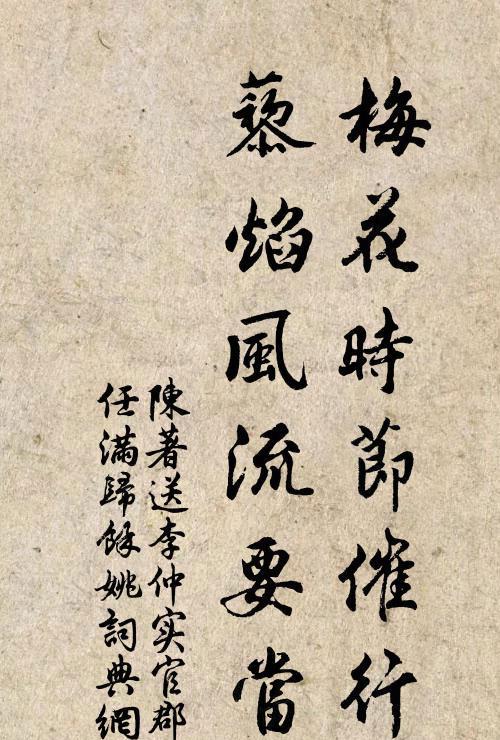 梅花時節催行
藜焰風流要當
陳著送李仲实官郡
任滿歸餘姚詞典網